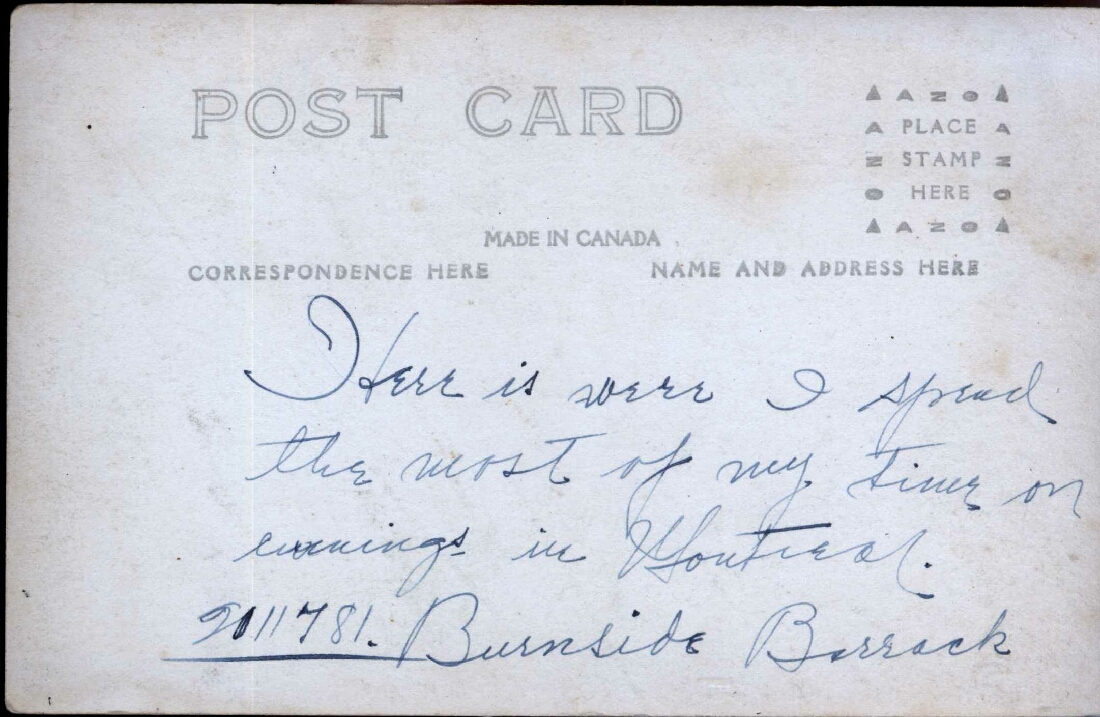 POST CARD
▲ A Z O ▲
A PLACE A
Z STAMP Z
O HERE O
▲ A Z O ▲
MADE IN CANADA
CORRESPONDENCE HERE NAME AND ADDRESS HERE
Here is were I spend
the most of my time on
evenings in Montreal.
2011781. Burnside Barrack